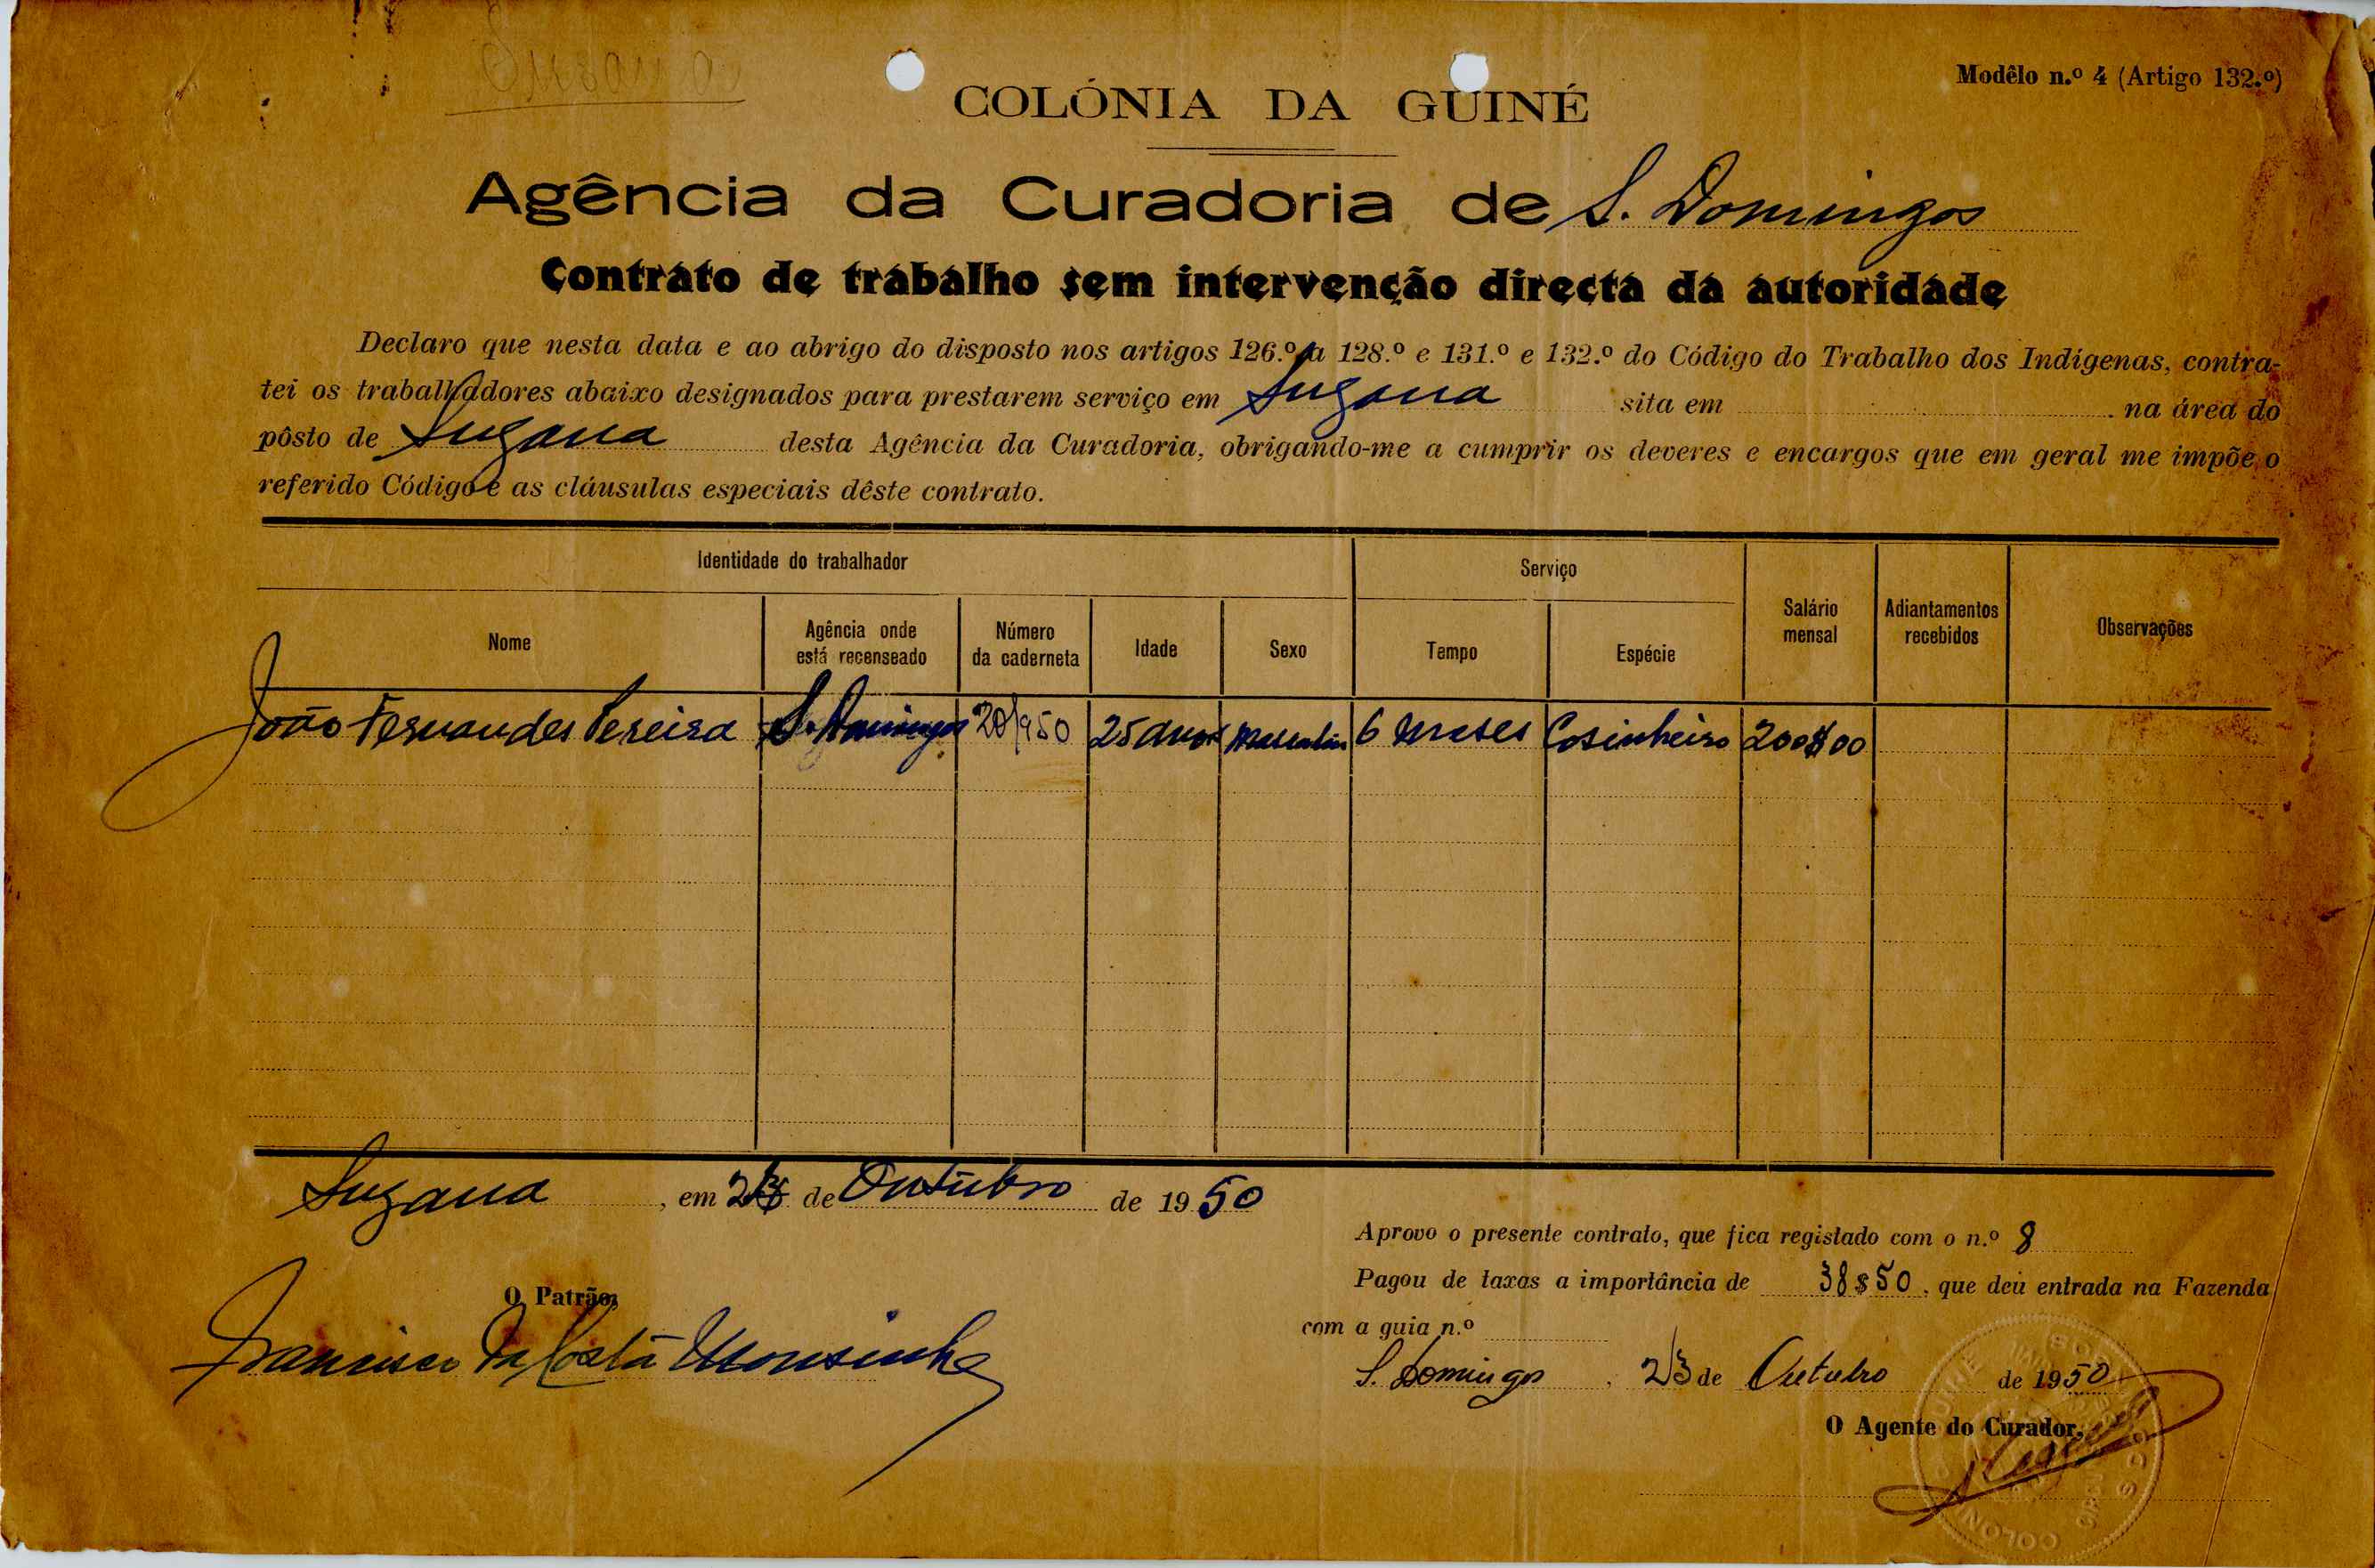 Susana
Modêlo n.º 4 (Artigo 132.º)
COLÓNIA DA GUINÉ
Agência da Curadoria de S. Domingos
Contrato de trabalho sem intervenção directa da autoridade
Declaro que nesta data e ao abrigo do disposto nos artigos 126.º a 128.º e 131.º e 132.º do Código do Trabalho dos Indígenas, contra-
tei os trabalhadores abaixo designados para prestarem serviço em Suzana sita em na área do
pôsto de Suzana desta Agência da Curadoria, obrigando-me a cumprir os deveres e encargos que em geral me impõe o
referido Código e as cláusulas especiais dêste contrato.
Identidade do trabalhador Serviço Salário mensal Adiantamentos recebidos Observações
Nome Agência onde está recenseado Número da caderneta Idade Sexo Tempo Espécie
João Fernandes Pereira S. Domingos 20/950 25 anos Masculino 6 meses Cosinheiro 200$00
Suzana, em 23 de Outubro de 1950
Aprovo o presente contrato, que fica registado com o n.º 8
Pagou de taxas a importância de 38$50, que deu entrada na Fazenda
com a guia n.º
O Patrão,
Francisco da Costa Monsinho
S. Domingos, 23 de Outubro de 1950
O Agente do Curador,